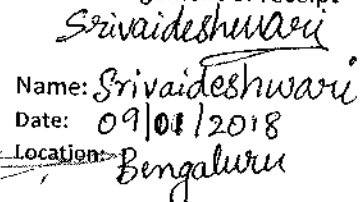 of receipt
Srivaideshwari
Name: Srivaideshwari
Date: 09|01|2018
Location: Bengaluru